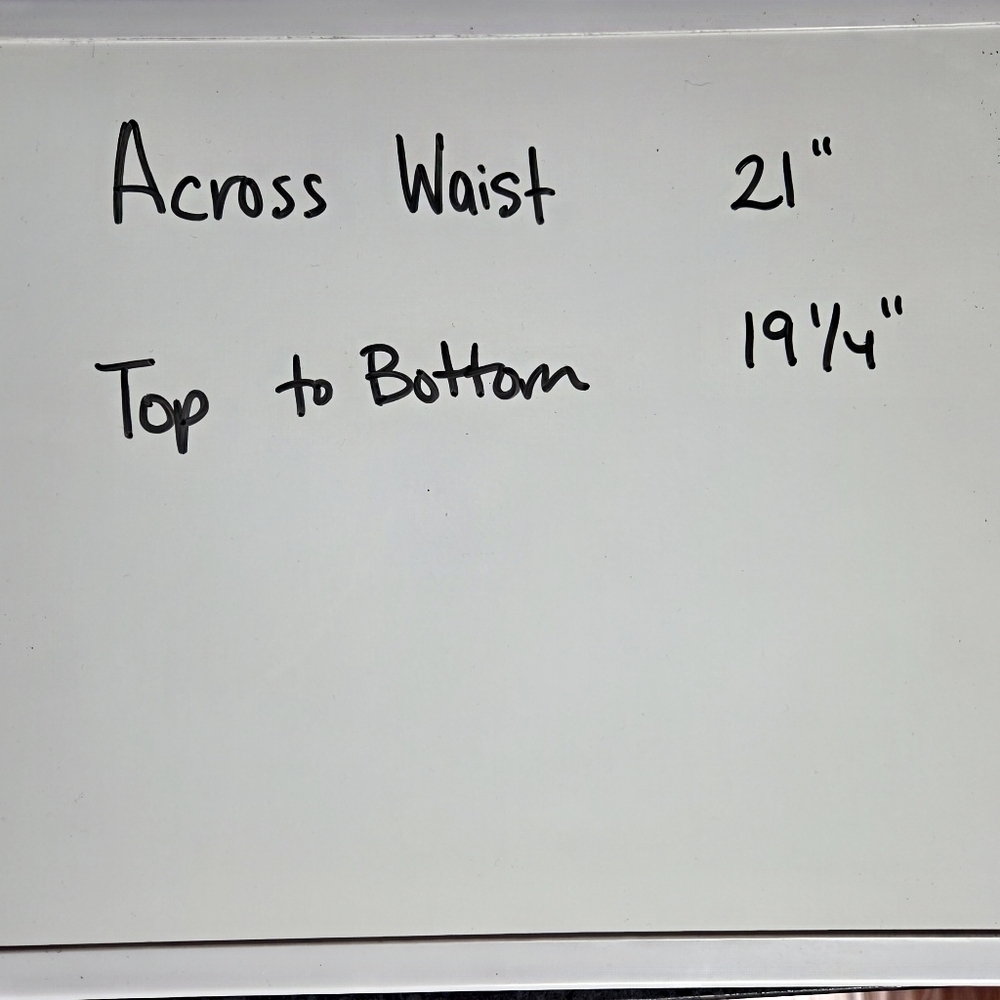 Across Waist 21"
Top to Bottom 19 1/4"